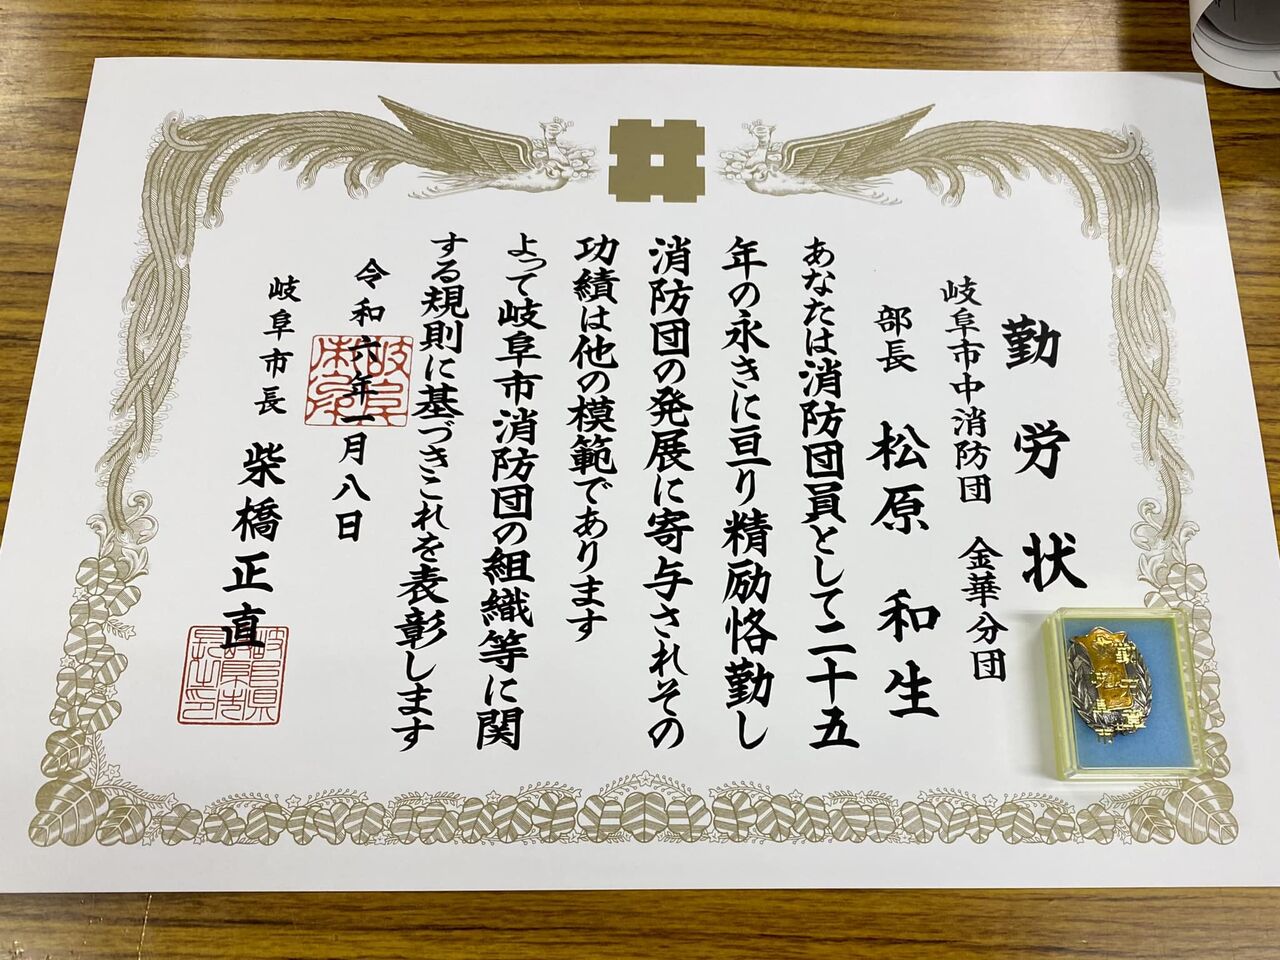 勤労状
岐阜市中消防団 金華分団
部長 松原 和生
あなたは消防団員として二十五
年の永きに亘り精励恪勤し
消防団の発展に寄与されその
功績は他の模範であります
よって岐阜市消防団の組織等に関
する規則に基づきこれを表彰します
令和六年一月八日
岐阜市長 柴橋正直